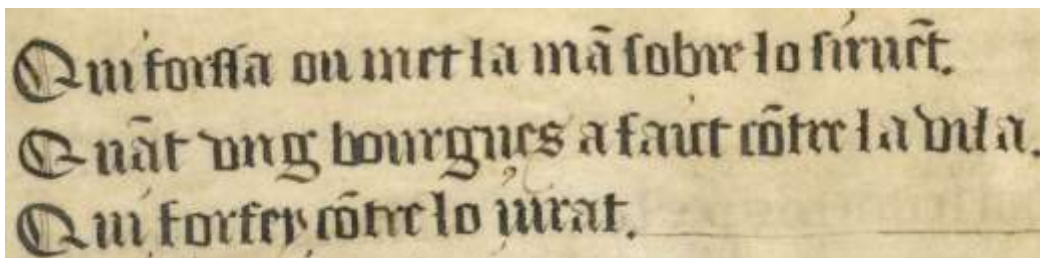 Qui forssa ou met la mā sobre lo siruēt.
Quāt vng bourgues a faict cōtre la vila.
Qui forfey cōtre lo jurat.